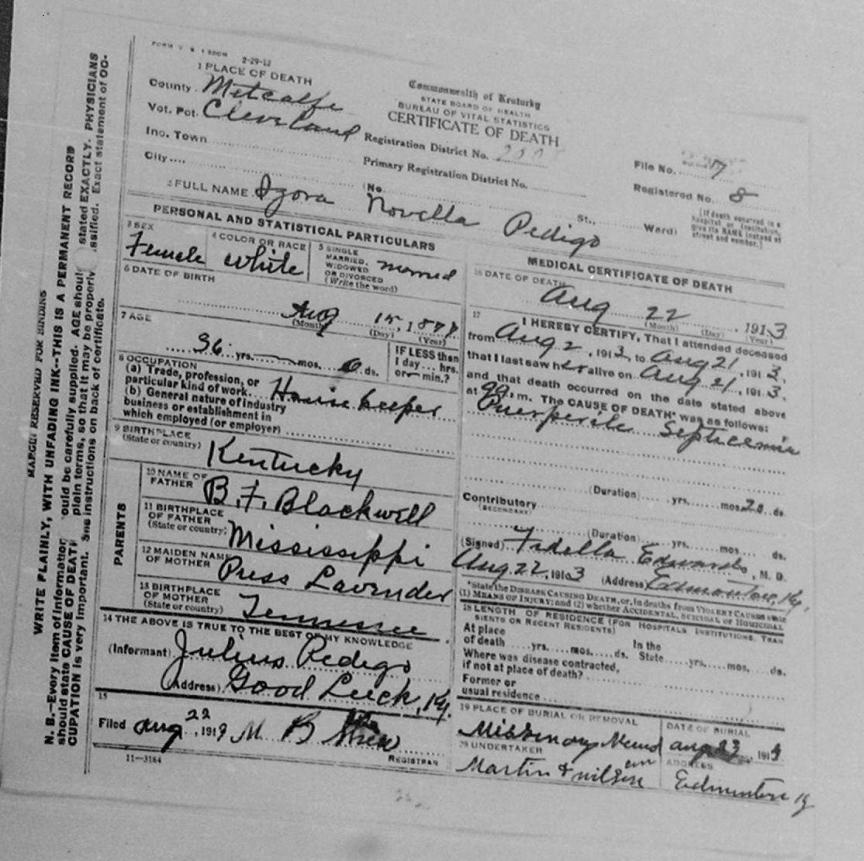 2-29-12
1 PLACE OF DEATH
County Metcalfe
Vot. Pct. Cleveland
Inc. Town
City
Commonwealth of Kentucky
STATE BOARD OF HEALTH
BUREAU OF VITAL STATISTICS
CERTIFICATE OF DEATH
Registration District No.
Primary Registration District No.
File No. 57
Registered No. 8
(No. St., Ward)
(If death occurred in a hospital or institution, give its NAME instead of street and number.)
2 FULL NAME Izora Novella Pedigo
PERSONAL AND STATISTICAL PARTICULARS
3 SEX
Female
4 COLOR OR RACE
white
5 SINGLE
MARRIED,
WIDOWED
OR DIVORCED
(Write the word)
married
6 DATE OF BIRTH
Aug 15, 1877
(Month) (Day) (Year)
7 AGE
36 yrs. mos. 6 ds.
IF LESS than
1 day... hrs.
or... min.?
8 OCCUPATION
(a) Trade, profession, or
particular kind of work House keeper
(b) General nature of industry
business or establishment in
which employed (or employer)
9 BIRTHPLACE
(State or country)
Kentucky
PARENTS
10 NAME OF
FATHER
B. F. Blackwell
11 BIRTHPLACE
OF FATHER
(State or country)
Mississippi
12 MAIDEN NAME
OF MOTHER
Press Lavender
13 BIRTHPLACE
OF MOTHER
(State or country)
Tennessee
14 THE ABOVE IS TRUE TO THE BEST OF MY KNOWLEDGE
(Informant) Julius Pedigo
(Address) Good Luck, Ky.
15
Filed Aug 22, 191 M B
REGISTRAR
11-3184
MEDICAL CERTIFICATE OF DEATH
16 DATE OF DEATH
Aug 22, 1913
(Month) (Day) (Year)
17 I HEREBY CERTIFY, That I attended deceased
from Aug 2, 1913, to Aug 21, 1913,
that I last saw her alive on Aug 21, 1913,
and that death occurred on the date stated above
at m. The CAUSE OF DEATH* was as follows:
Puerperile Septicemia
(Duration) yrs. mos. 20 ds.
Contributory
(SECONDARY)
(Duration) yrs. mos. ds.
(Signed) Fidella Edwards, M. D.
Aug 22, 1913 (Address) Edmonton, Ky.
*State the DISEASE CAUSING DEATH, or, in deaths from VIOLENT CAUSES state
(1) MEANS OF INJURY; and (2) whether ACCIDENTAL, SUICIDAL or HOMICIDAL
18 LENGTH OF RESIDENCE (FOR HOSPITALS INSTITUTIONS, TRANSIENTS OR RECENT RESIDENTS)
At place
of death yrs. mos. ds.
In the
State yrs. mos. ds.
Where was disease contracted,
if not at place of death?
Former or
usual residence
19 PLACE OF BURIAL OR REMOVAL
Missionary
DATE OF BURIAL
Aug 23 191
20 UNDERTAKER
Martin &
ADDRESS
Edmonton Ky
MARGIN RESERVED FOR BINDING
WRITE PLAINLY, WITH UNFADING INK--THIS IS A PERMANENT RECORD
N. B.--Every item of information should be carefully supplied. AGE should stated EXACTLY. PHYSICIANS
should state CAUSE OF DEATH plain terms, so that it may be properly classified. Exact statement of OC-
CUPATION is very important. See instructions on back of certificate.